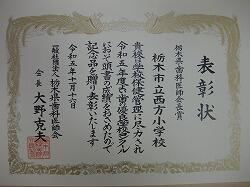 表彰状
栃木県歯科医師会長賞
栃木市立西方小学校
貴校は学校保健管理に尽力され
令和五年度の歯の優良校コンクール
において頭書の成績をおさめたので
記念品を贈り表彰いたします
令和五年十月十六日
一般社団法人 栃木県歯科医師会
会長 大野克夫